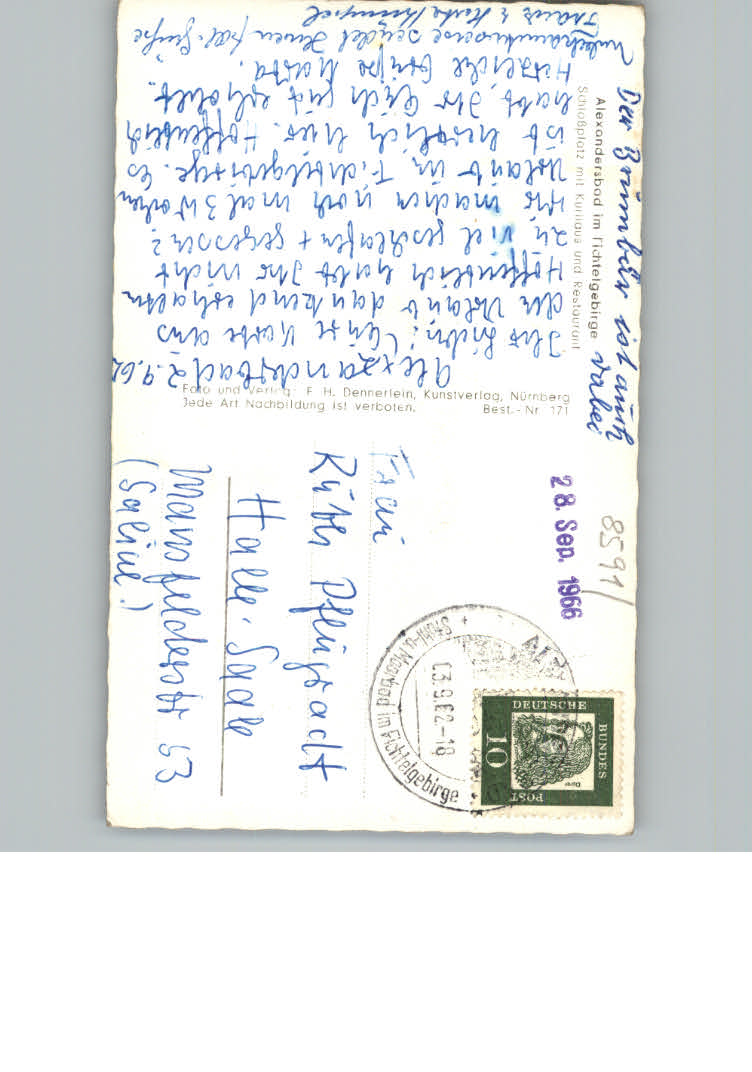 Alexandersbad im Fichtelgebirge
Schloßplatz mit Kurhaus und Restaurant
Der Brummbär ist auch
dabei
Alexandersbad 2.9.62
Ihr Lieben! Eure Karte aus
dem Urlaub dankend erhalten
Hoffentlich habt Ihr nicht
zu viel geschlafen + gegessen?
Wir machen noch mal 3 Wochen
Urlaub im Fichtelgebirge. Es
ist herrlich hier. Hoffentlich
habt Ihr Euch gut erholt.
Herzliche Grüße
Unbekannterweise sendet Ihnen Grüße
Franz u.
Foto und Verlag: F. H. Dennerlein, Kunstverlag, Nürnberg
Jede Art Nachbildung ist verboten. Best.-Nr. 171
Frau
Ruth Pflugradt
Halle-Saale
Mansfelderstr 53
(Saline!)
28. Sep. 1966
8591/
Moorbad im Fichtelgebirge
03.9.62-18
DEUTSCHE
BUNDES
POST
10
Dürer